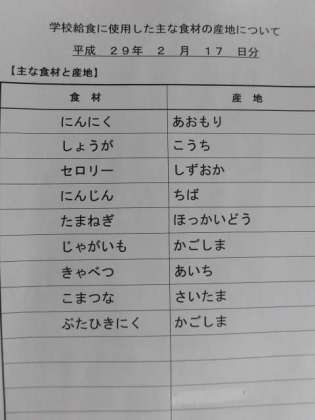 学校給食に使用した主な食材の産地について
平成 29年 2 月 17 日分
【主な食材と産地】
食 材 産 地
にんにく あおもり
しょうが こうち
セロリー しずおか
にんじん ちば
たまねぎ ほっかいどう
じゃがいも かごしま
きゃべつ あいち
こまつな さいたま
ぶたひきにく かごしま